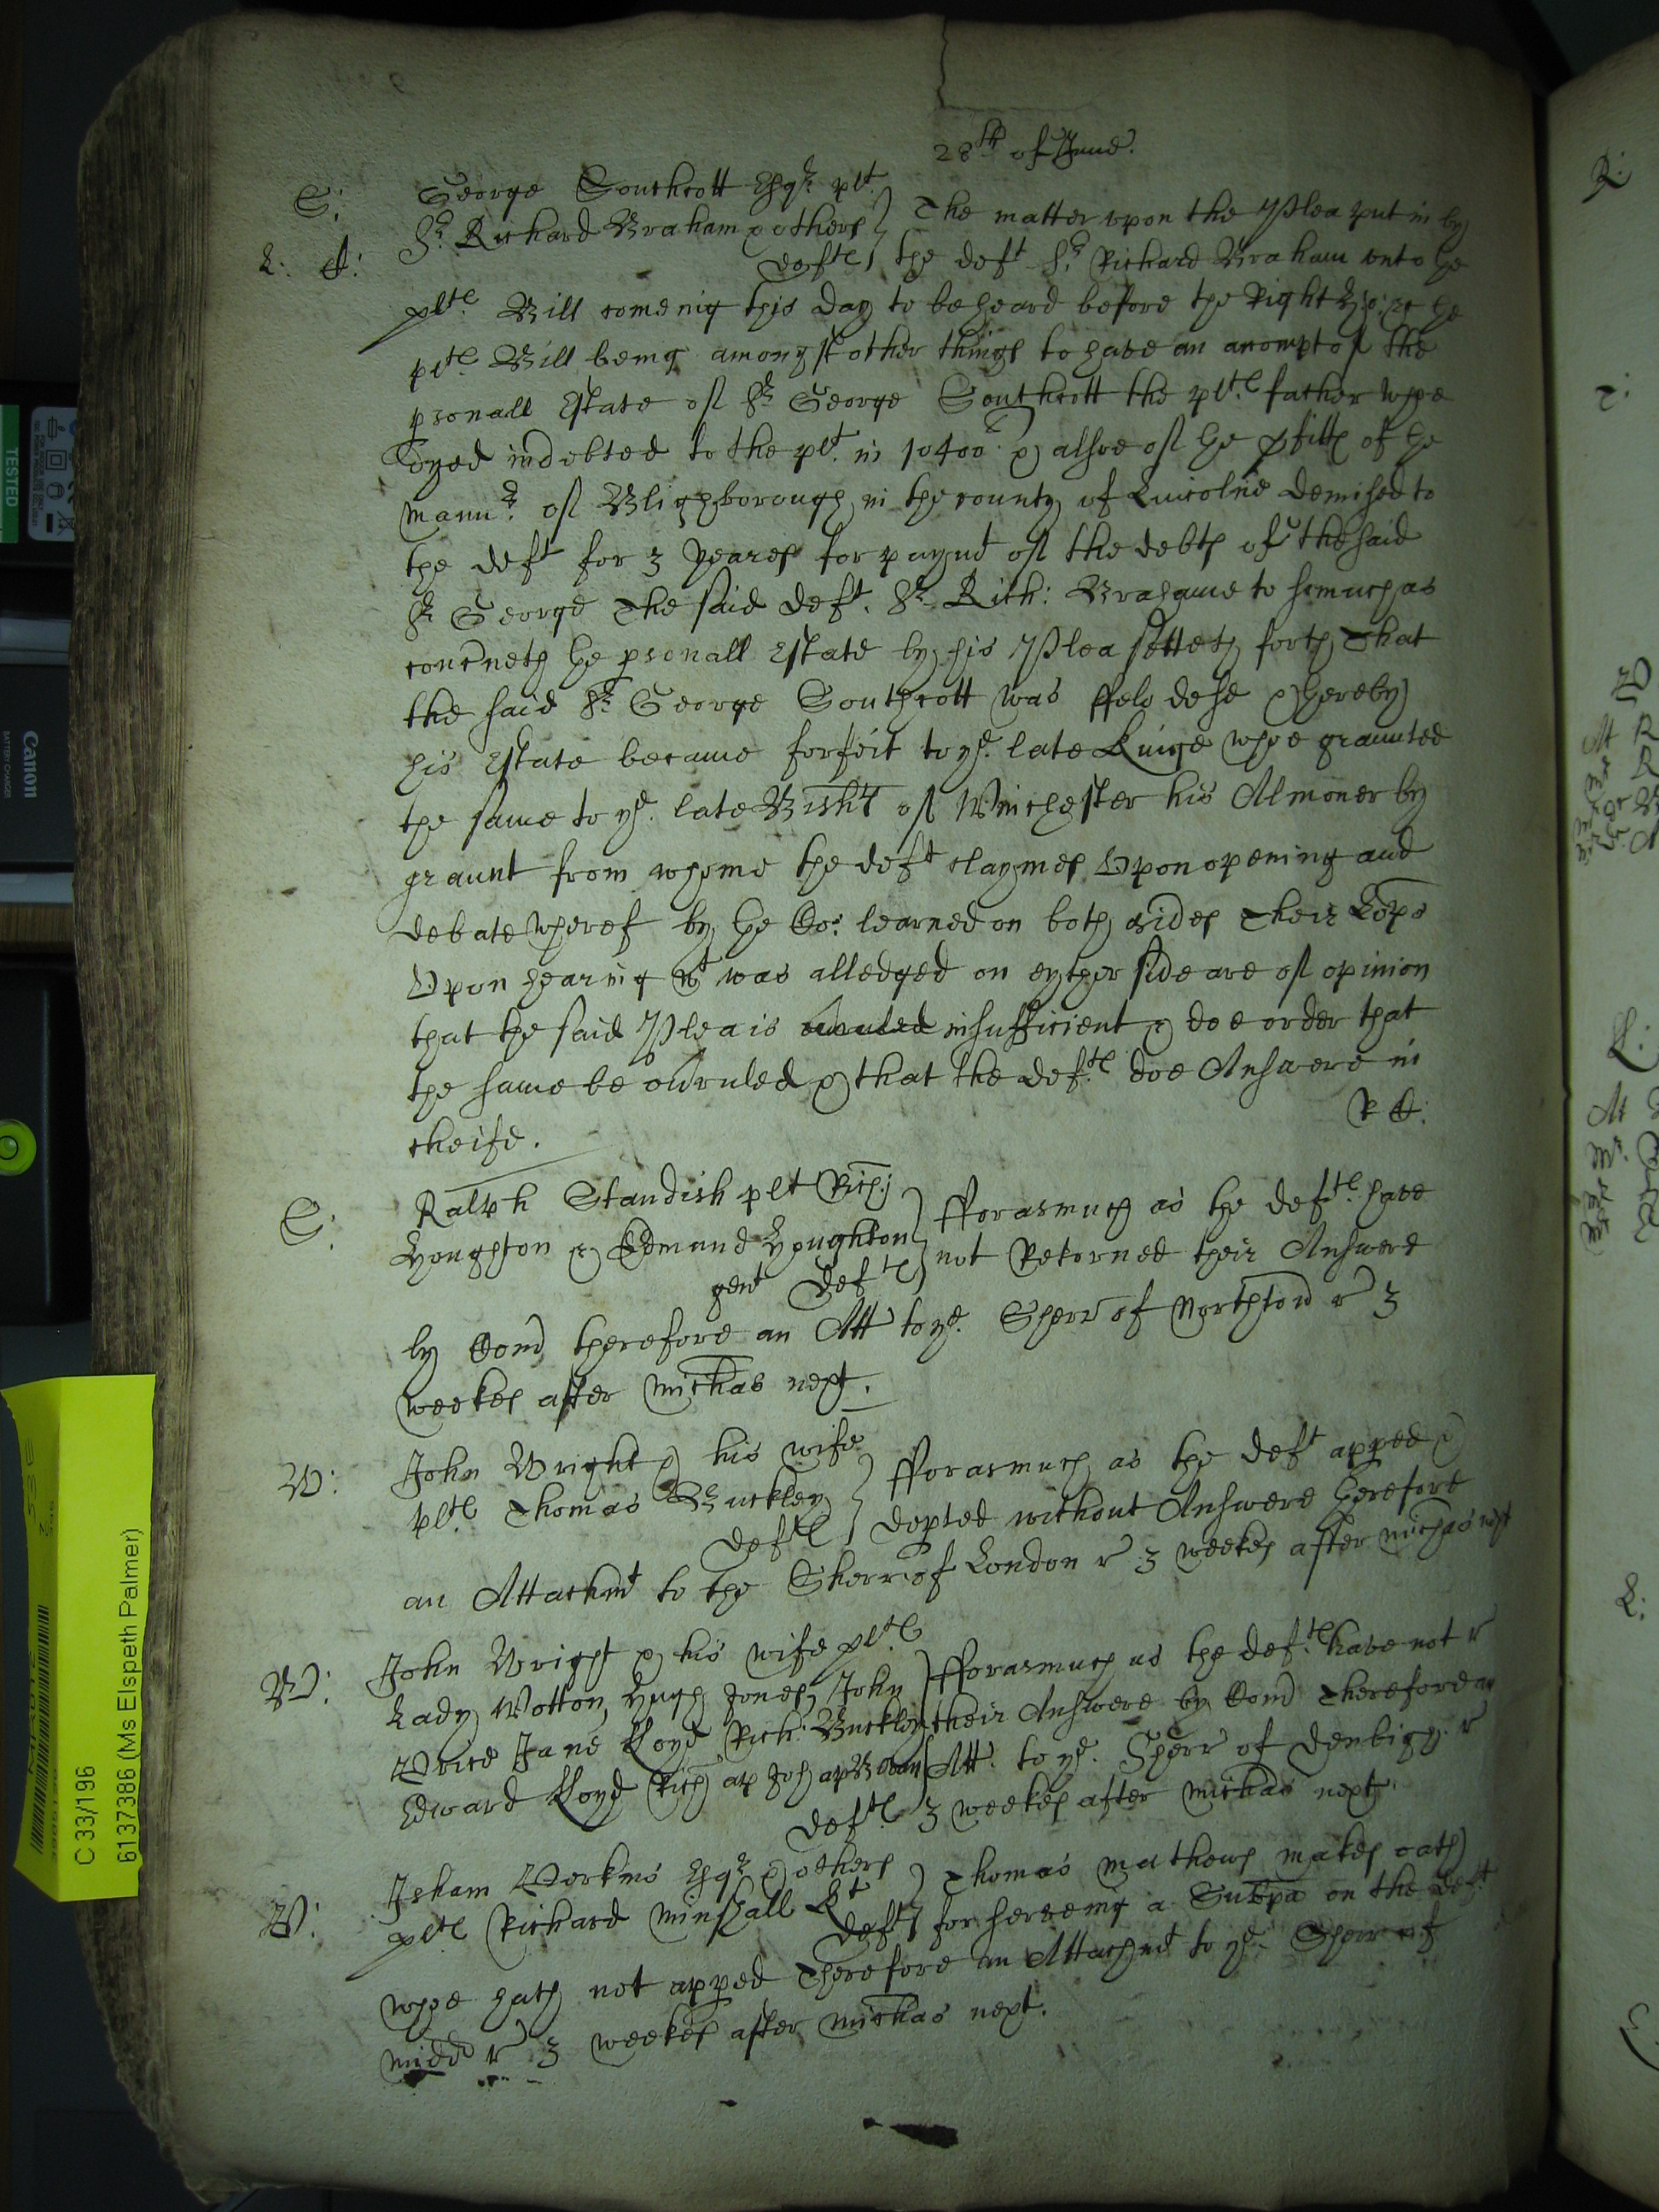 28th of June.
S: George Southcott Esqr. plt.
Sr. Richard Braham & others
L: A: deftes
The matter upon the Plea put in by
the deft Sr. Richard Braham unto the
pltes Bill comeing this day to be heard before the Right Ho: &c the
pltes Bill being amongst other things to have an accompt of the
psonall Estate of Sr George Southcott the pltes father whoe
dyed indebted to the plt. in 10400l & alsoe of the pfitts of the
mannr. of Blighborough in the county of Lincolne demised to
the deft for 3 yeares for paymt of the debts of the said
Sr George The said deft. Sr. Rich: Brahame to somuch as
concneth the psonall Estate by his Plea setteth forth That
the said Sr. George Southcott was ffelo de se & thereby
his Estate became forfeit to ye. late Kinge whoe graunted
the same to ye. late Bishp of Winchester his Almoner by
graunt from whome the deft claymes Upon opening and
debate whereof by the Co: learned on both sides Their Lopps
Upon hearing wt was alledged on eyther side are of opinion
that the said Plea is insufficient & doe order that
the same be ovruled & that the deftes doe Answere in
cheife.
S: Ralph Standish plt Rich:
Houghton & Edmund Houghton
gent deftes
fforasmuch as the deftes have
not Retorned their Answere
by Comd therefore an Att to ye. Sherr of Northton r 3
weekes after michas next.
W: John Wright & his wife
pltes Thomas Buckley
deftes
fforasmuch as the deft apped &
depted without Answere therefore
an Attachmt to the Sherr of London r 3 weekes after michas next
W: John Wright & his wife pltes
Lady Wotton, Hugh Jones, John
Price Jane Lloyd Rich: Buckley
Edward Lloyd Rich ap Joh ap
deftes
fforasmuch as the deftes have not r
their Answere by Comd Therefore an
Att. to ye. Sherr of denbigh r
3 weekes after michas next.
P: Isham Perkins Esqr & others
pltes Richard Minshall Kt
deft
Thomas mathews makes oath
for serveing a Subpa on the deft
whoe hath not apped Therefore an Attachmt to ye. Sherr of
midd r 3 weekes after michas next.
TESTED
Canon
BATTERY CHARGER
C 33/196
6137386 (Ms Elspeth Palmer)